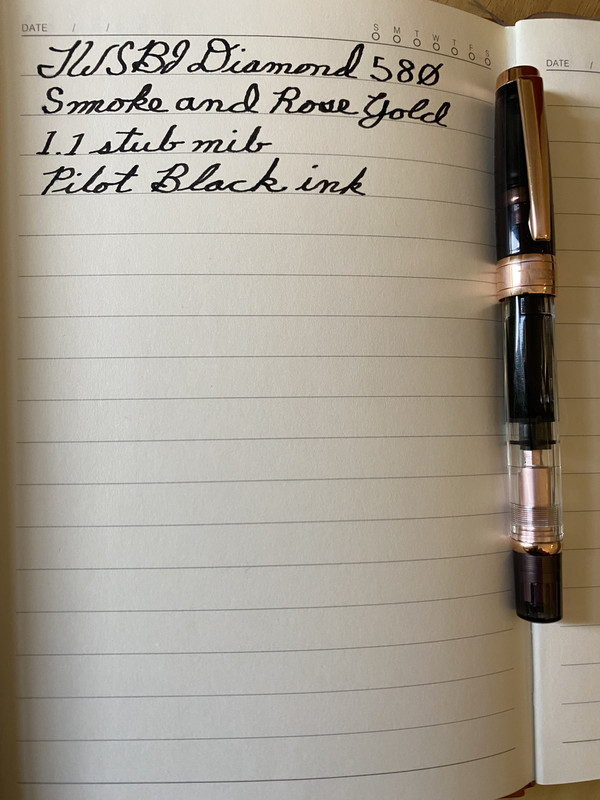 DATE / /
S M T W T F S
TWSBI Diamond 580
Smoke and Rose Gold
1.1 stub nib
Pilot Black ink
DATE /